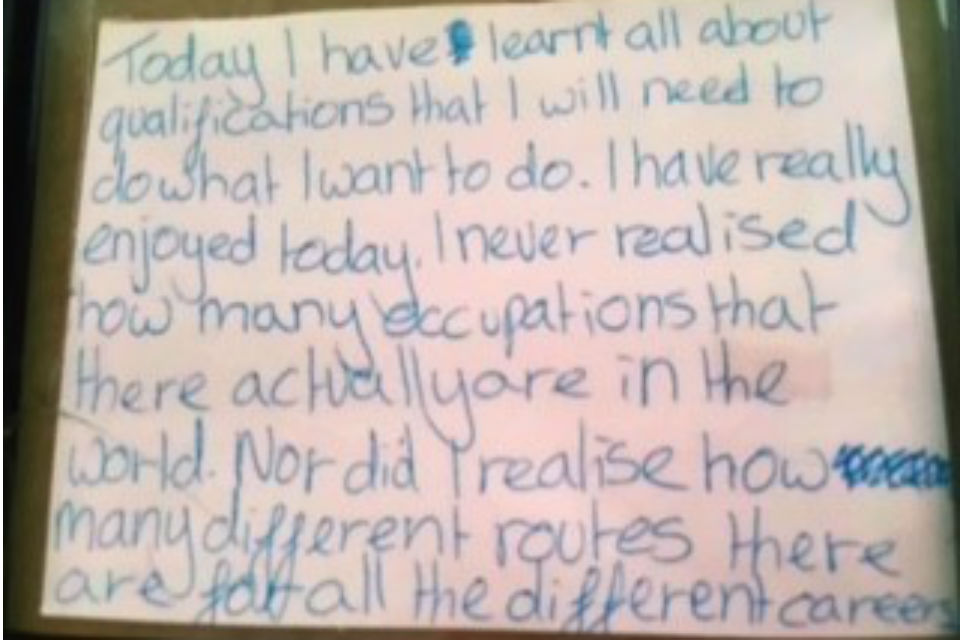 Today I have learnt all about
qualifications that I will need to
do what I want to do. I have really
enjoyed today. I never realised
how many occupations that
there actually are in the
world. Nor did I realise how
many different routes there
are for all the different careers